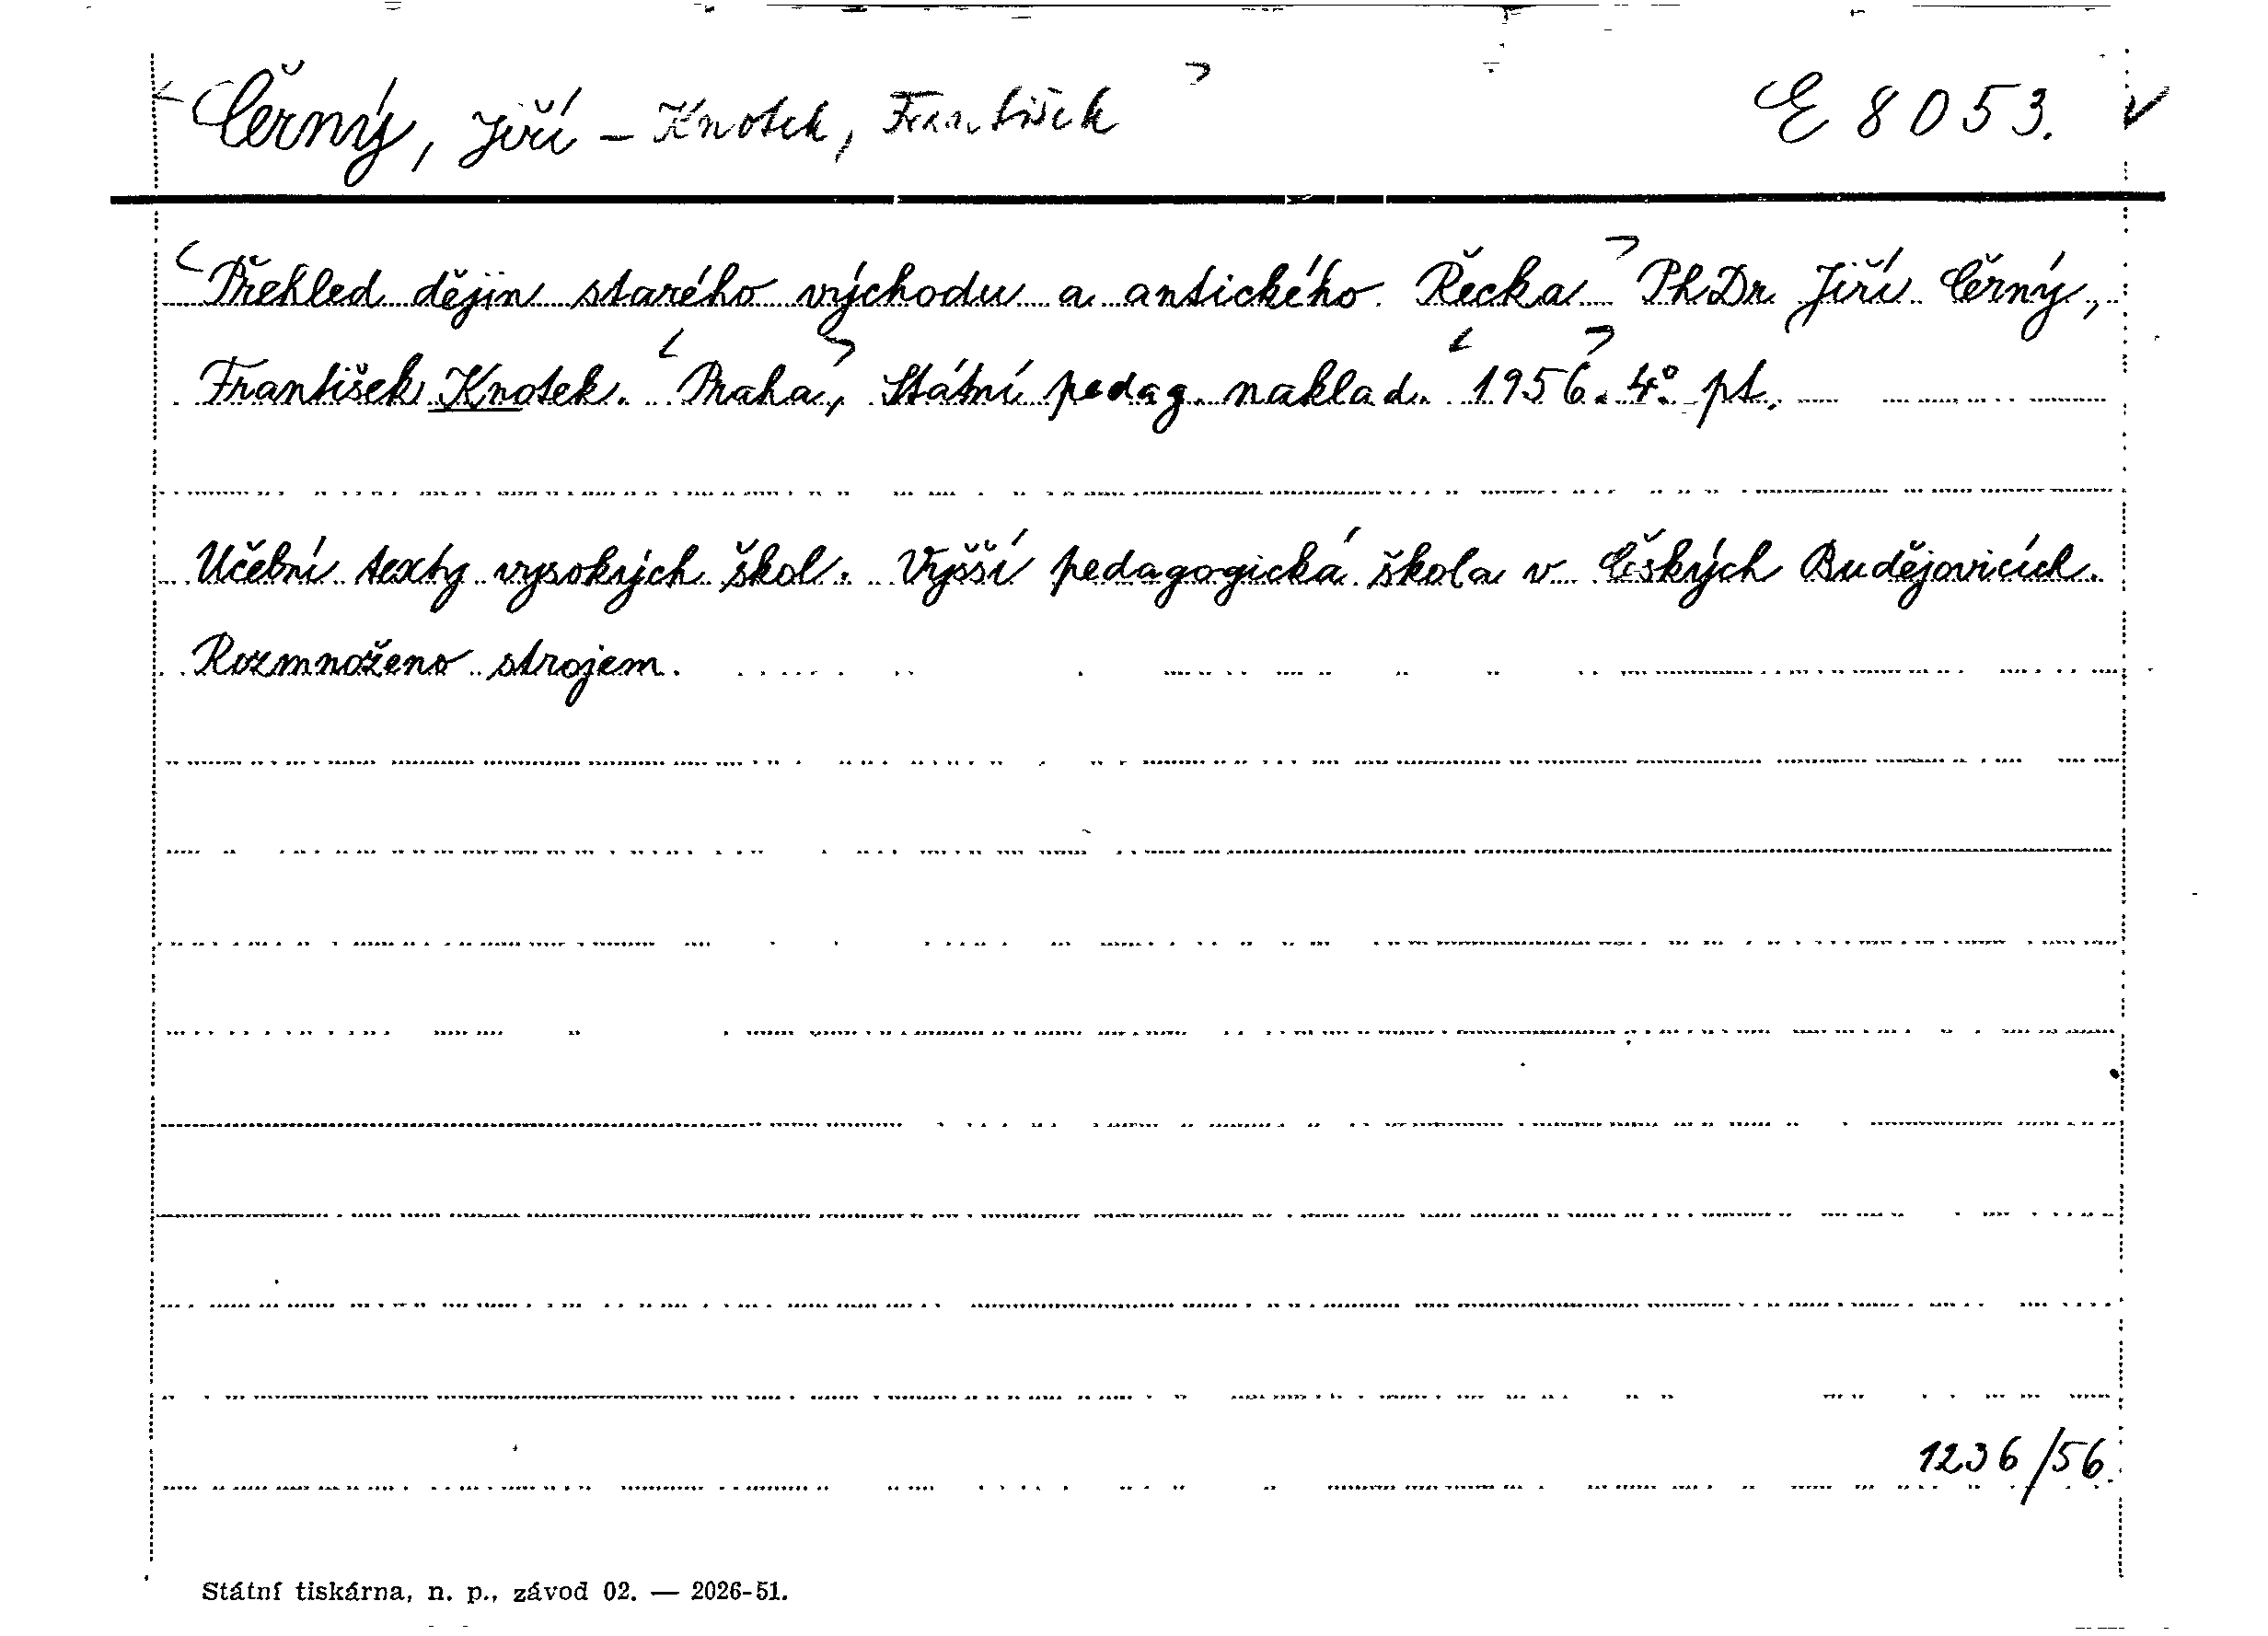 Černý, Jiří – Knotek, František E 8053.
Přehled dějin starého východu a antického Řecka PhDr. Jiří Černý,
František Knotek. Praha, Státní pedag. naklad. 1956. 4° pt.
Učební texty vysokých škol. Vyšší pedagogická škola v Českých Budějovicích.
Rozmnoženo strojem.
1236/56
Státní tiskárna, n. p., závod 02. — 2026-51.